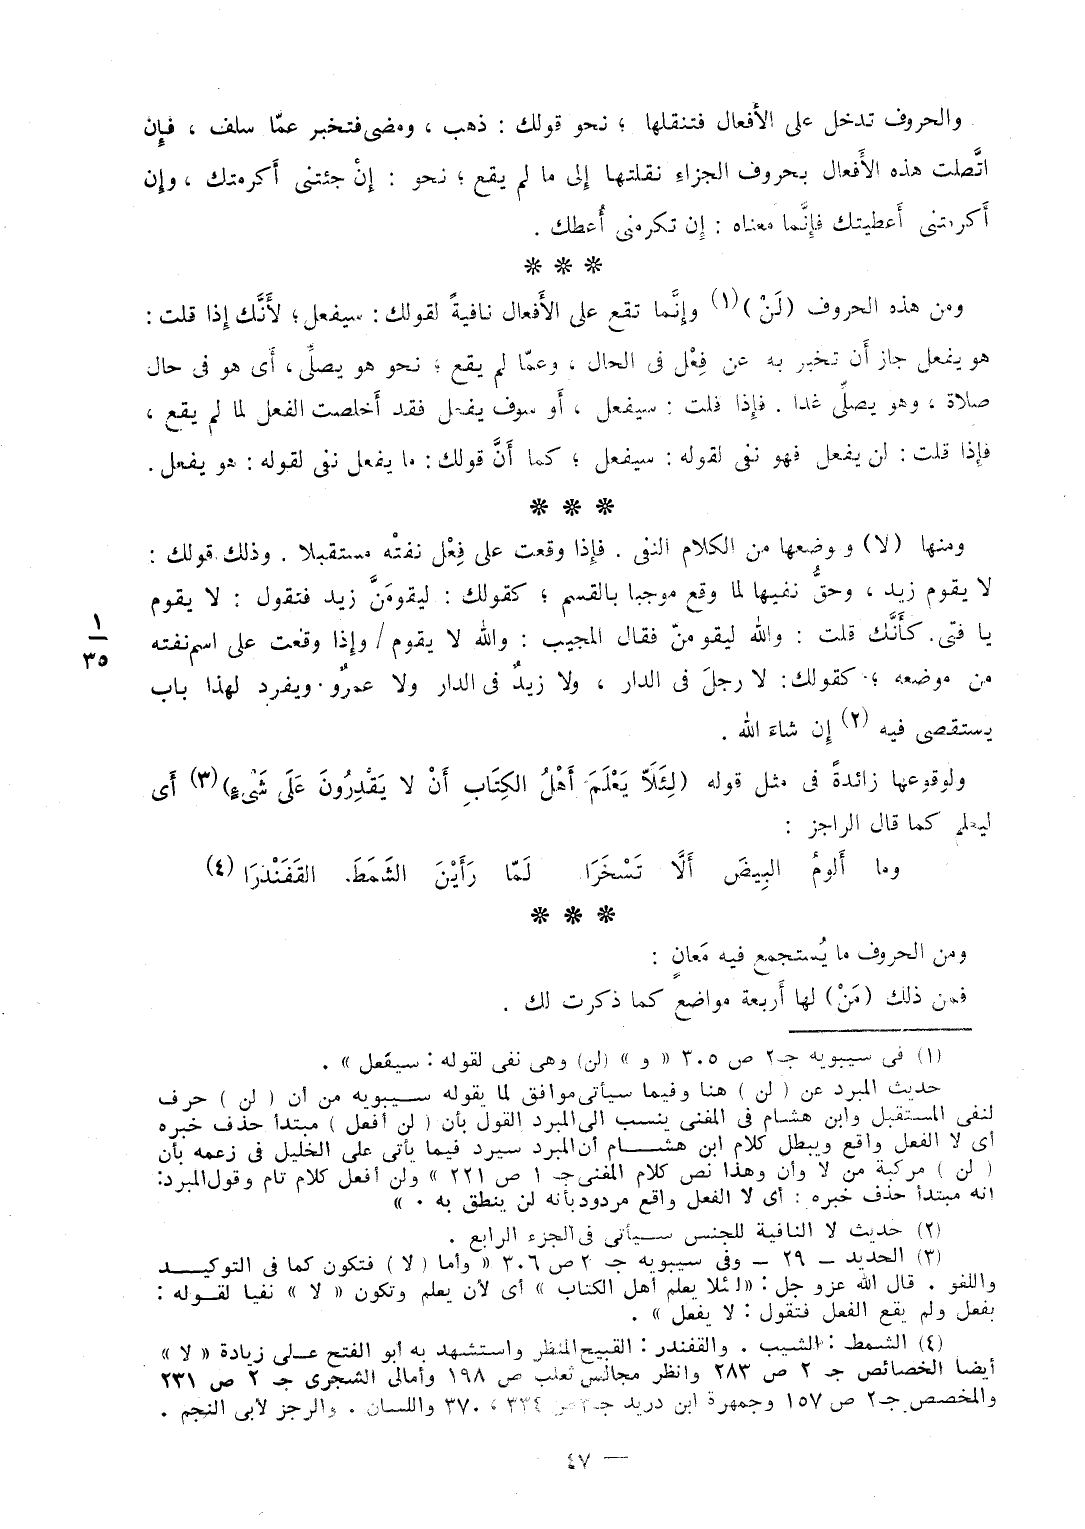 والحروف تدخل على الأَفعال فتنقلها ؛ نحو قولك : ذهب ، ومضى فتخبر عمّا سلف ، فإِن
اتَّصلت هذه الأَفعال بحروف الجزاءِ نقلتها إلى ما لم يقع ؛ نحو : إنْ جئتنى أَكرمتك ، وإن
أَكرمتنى أَعطيتك فإِنَّما معناه : إن تكرمنى أُعطك .
* * *
ومن هذه الحروف (لَنْ) (١) وإنَّما تقع على الأَفعال نافيةً لقولك : سيفعل ؛ لأَنَّك إذا قلت :
هو يفعل جاز أَن تخبر به عن فِعْل فى الحال ، وعمّا لم يقع ؛ نحو هو يصلِّى ، أَى هو فى حال
صلاة ، وهو يصلِّى غدا . فإِذا قلت : سيفعل ، أَو سوف يفعل فقد أَخلصت الفعل لما لم يقع ،
فإِذا قلت : لن يفعل فهو نفى لقوله : سيفعل ؛ كما أَنَّ قولك : ما يفعل نفى لقوله : هو يفعل .
* * *
ومنها (لا) وموضعها من الكلام النفى . فإِذا وقعت على فِعْل نفتْه مستقبلا . وذلك قولك :
لا يقوم زيد ، وحقُّ نفيها لما وقع موجبا بالقسم ؛ كقولك : ليقومَنَّ زيد فتقول : لا يقوم
يا فتى . كأَنَّك قلت : والله ليقومنّ فقال المجيب : والله لا يقوم / وإذا وقعت على اسم نفته
١
٣٥
من موضعه ؛ كقولك : لا رجلَ فى الدار ، ولا زيدٌ فى الدار ولا عمروٌ . ويفرد لهذا باب
يستقصى فيه (٢) إن شاءَ الله .
ولوقوعها زائدةً فى مثل قوله (لِئَلَّا يَعْلَمَ أَهْلُ الكِتَابِ أَنْ لا يَقْدِرُونَ عَلَى شَىْءٍ) (٣) أَى
ليعلم كما قال الراجز :
وما أَلومُ البِيضَ أَلَّا تَسْخَرَا لَمّا رَأَيْنَ الشَّمَطَ القَفَنْدَرَا (٤)
* * *
ومن الحروف ما يُستجمع فيه مَعانٍ :
فمن ذلك (مَنْ) لها أَربعة مواضع كما ذكرت لك .
(١) فى سيبويه جـ٢ ص ٣٠٥ « و » (لن) وهى نفى لقوله : سيفعل » .
حديث المبرد عن ( لن ) هنا وفيما سيأتى موافق لما يقوله سيبويه من أن ( لن ) حرف
لنفى المستقبل وابن هشام فى المغنى ينسب الى المبرد القول بأن ( لن أفعل ) مبتدأ حذف خبره
أى لا الفعل واقع ويبطل كلام ابن هشام أن المبرد سيرد فيما يأتى على الخليل فى زعمه بأن
( لن ) مركبة من لا وأن وهذا نص كلام المغنى جـ ١ ص ٢٢١ » ولن أفعل كلام تام وقول المبرد:
انه مبتدأ حذف خبره : أى لا الفعل واقع مردود بأنه لن ينطق به . »
(٢) حديث لا النافية للجنس سيأتى فى الجزء الرابع .
(٣) الحديد – ٢٩ – وفى سيبويه جـ ٢ ص ٣٠٦ « وأما ( لا ) فتكون كما فى التوكيد
واللغو . قال الله عزو جل : «لئلا يعلم أهل الكتاب » أى لأن يعلم وتكون « لا » نفيا لقوله :
يفعل ولم يقع الفعل فتقول : لا يفعل » .
(٤) الشمط : الشيب . والقفندر : القبيح المنظر واستشهد به أبو الفتح على زيادة « لا »
أيضا الخصائص جـ ٢ ص ٢٨٣ وانظر مجالس ثعلب ص ١٩٨ وأمالى الشجرى جـ ٢ ص ٢٣١
والمخصص جـ٢ ص ١٥٧ وجمهرة ابن دريد جـ ص ٣٣٤ ، ٣٧٠ واللسان . والرجز لأبى النجم .
— ٤٧